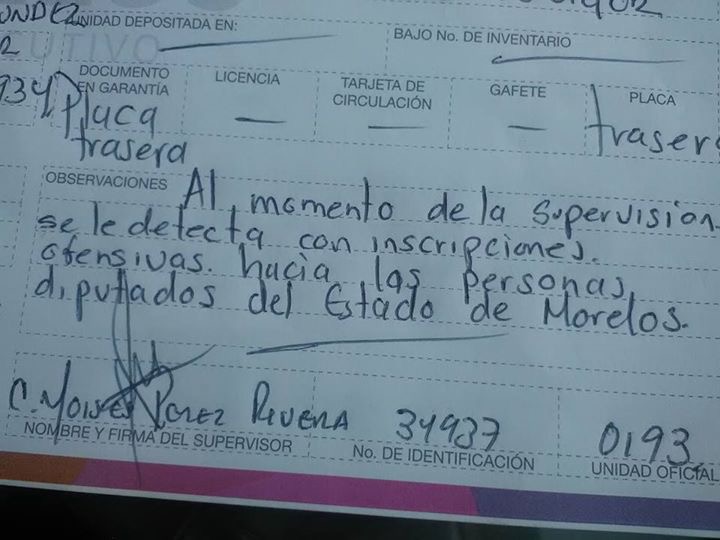 UNIDAD DEPOSITADA EN:
BAJO No. DE INVENTARIO
2
934
DOCUMENTO
EN GARANTÍA
LICENCIA
TARJETA DE
CIRCULACIÓN
GAFETE
PLACA
Placa
trasera
—
—
—
trasera
OBSERVACIONES Al momento de la supervision
se le detecta con inscripciones.
ofensivas. hacia las personas,
diputados del Estado de Morelos.
C. Moises Perez Rivera
34937
0193
NOMBRE Y FIRMA DEL SUPERVISOR
No. DE IDENTIFICACIÓN
UNIDAD OFICIAL